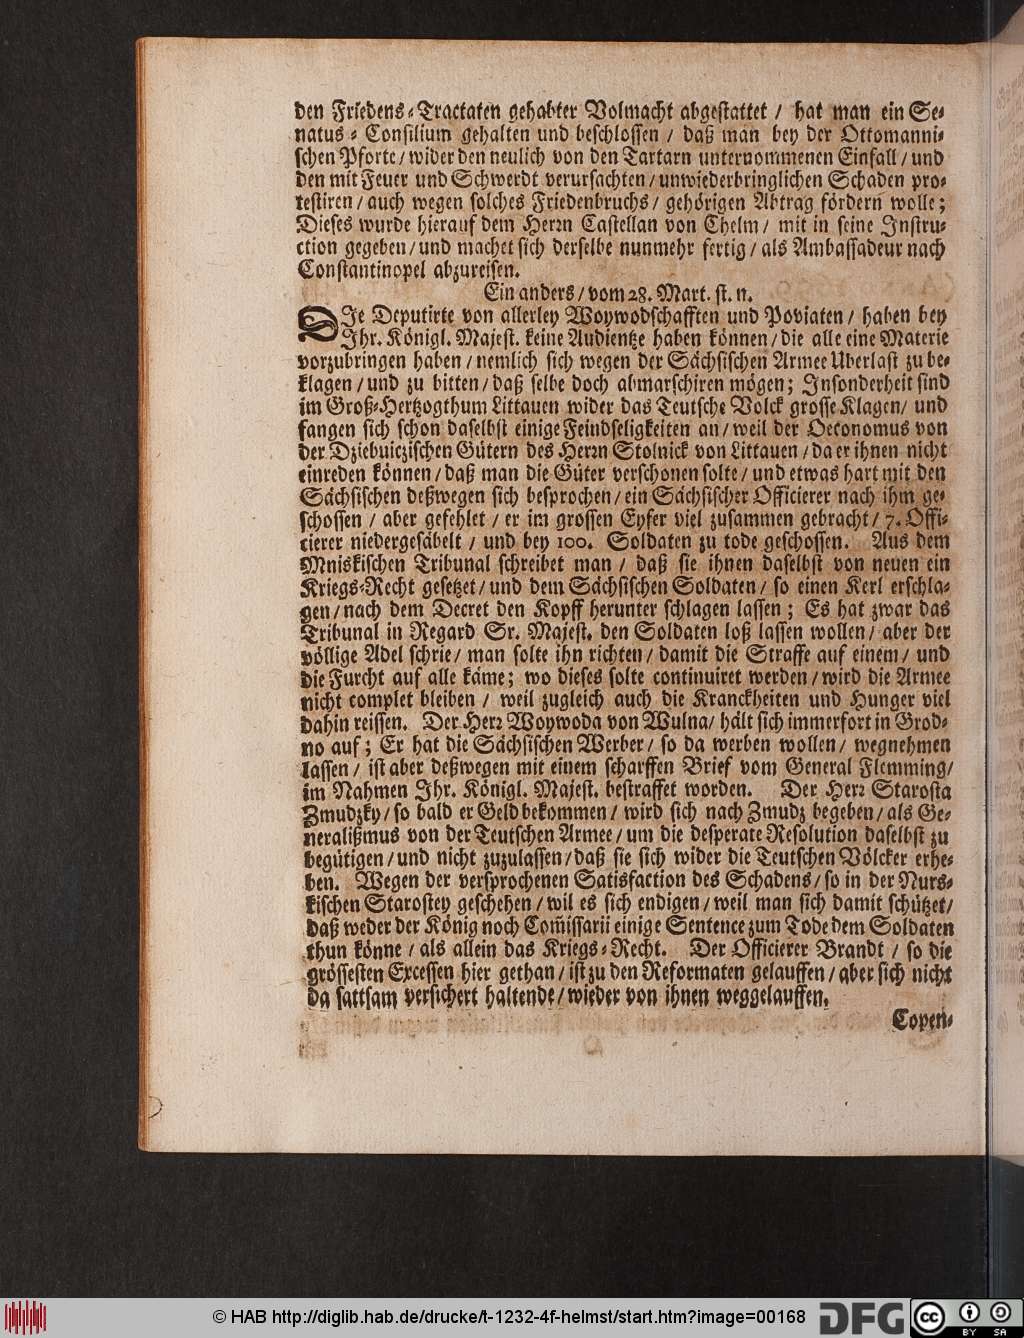 den Friedens-Tractaten gehabter Volmacht abgestattet / hat man ein Se-
natus-Consilium gehalten und beschlossen / daß man bey der Ottomanni-
schen Pforte / wider den neulich von den Tartarn unternommenen Einfall / und
den mit Feuer und Schwerdt verursachten / unwiederbringlichen Schaden pro-
testiren / auch wegen solches Friedenbruchs / gehörigen Abtrag fördern wolle;
Dieses wurde hierauf dem Herrn Castellan von Chelm / mit in seine Instru-
ction gegeben / und machet sich derselbe nunmehr fertig / als Ambassadeur nach
Constantinopel abzureisen.
Ein anders / vom 28. Mart. st. n.
DIe Deputirte von allerley Woywodschafften und Poviaten / haben bey
Ihr. Königl. Majest. keine Audientze haben können / die alle eine Materie
vorzubringen haben / nemlich sich wegen der Sächsischen Armee Uberlast zu be-
klagen / und zu bitten / daß selbe doch abmarschiren mögen; Insonderheit sind
im Groß-Hertzogthum Littauen wider das Teutsche Volck grosse Klagen / und
fangen sich schon daselbst einige Feindseligkeiten an / weil der Oeconomus von
der Dziebuiczischen Gütern des Herrn Stolnick von Littauen / da er ihnen nicht
einreden können / daß man die Güter verschonen solte / und etwas hart mit den
Sächsischen deßwegen sich besprochen / ein Sächsischer Officierer nach ihm ge-
schossen / aber gefehlet / er im grossen Eyfer viel zusammen gebracht / 7. Offi-
cierer niedergesäbelt / und bey 100. Soldaten zu tode geschossen. Aus dem
Mniskischen Tribunal schreibet man / daß sie ihnen daselbst von neuen ein
Kriegs-Recht gesetzet / und dem Sächsischen Soldaten / so einen Kerl erschla-
gen / nach dem Decret den Kopff herunter schlagen lassen; Es hat zwar das
Tribunal in Regard Sr. Majest. den Soldaten loß lassen wollen / aber der
völlige Adel schrie / man solte ihn richten / damit die Straffe auf einem / und
die Furcht auf alle käme; wo dieses solte continuiret werden / wird die Armee
nicht complet bleiben / weil zugleich auch die Kranckheiten und Hunger viel
dahin reissen. Der Herr Woywoda von Wulna / hält sich immerfort in Grod-
no auf; Er hat die Sächsischen Werber / so da werben wollen / wegnehmen
lassen / ist aber deßwegen mit einem scharffen Brief vom General Flemming /
im Nahmen Ihr. Königl. Majest. bestraffet worden. Der Herr Starosta
Zmudzky / so bald er Geld bekommen / wird sich nach Zmudz begeben / als Ge-
neralißmus von der Teutschen Armee / um die desperate Resolution daselbst zu
begütigen / und nicht zuzulassen / daß sie sich wider die Teutschen Völcker erhe-
ben. Wegen der versprochenen Satisfaction des Schadens / so in der Nurs-
kischen Starostey geschehen / wil es sich endigen / weil man sich damit schützet /
daß weder der König noch Com̃issarii einige Sentence zum Tode dem Soldaten
thun könne / als allein das Kriegs-Recht. Der Officierer Brandt / so die
grössesten Excessen hier gethan / ist zu den Reformaten gelauffen / aber sich nicht
da sattsam versichert haltende / wieder von ihnen weggelauffen.
Copen-
© HAB http://diglib.hab.de/drucke/t-1232-4f-helmst/start.htm?image=00168
DFG
cc
BY SA